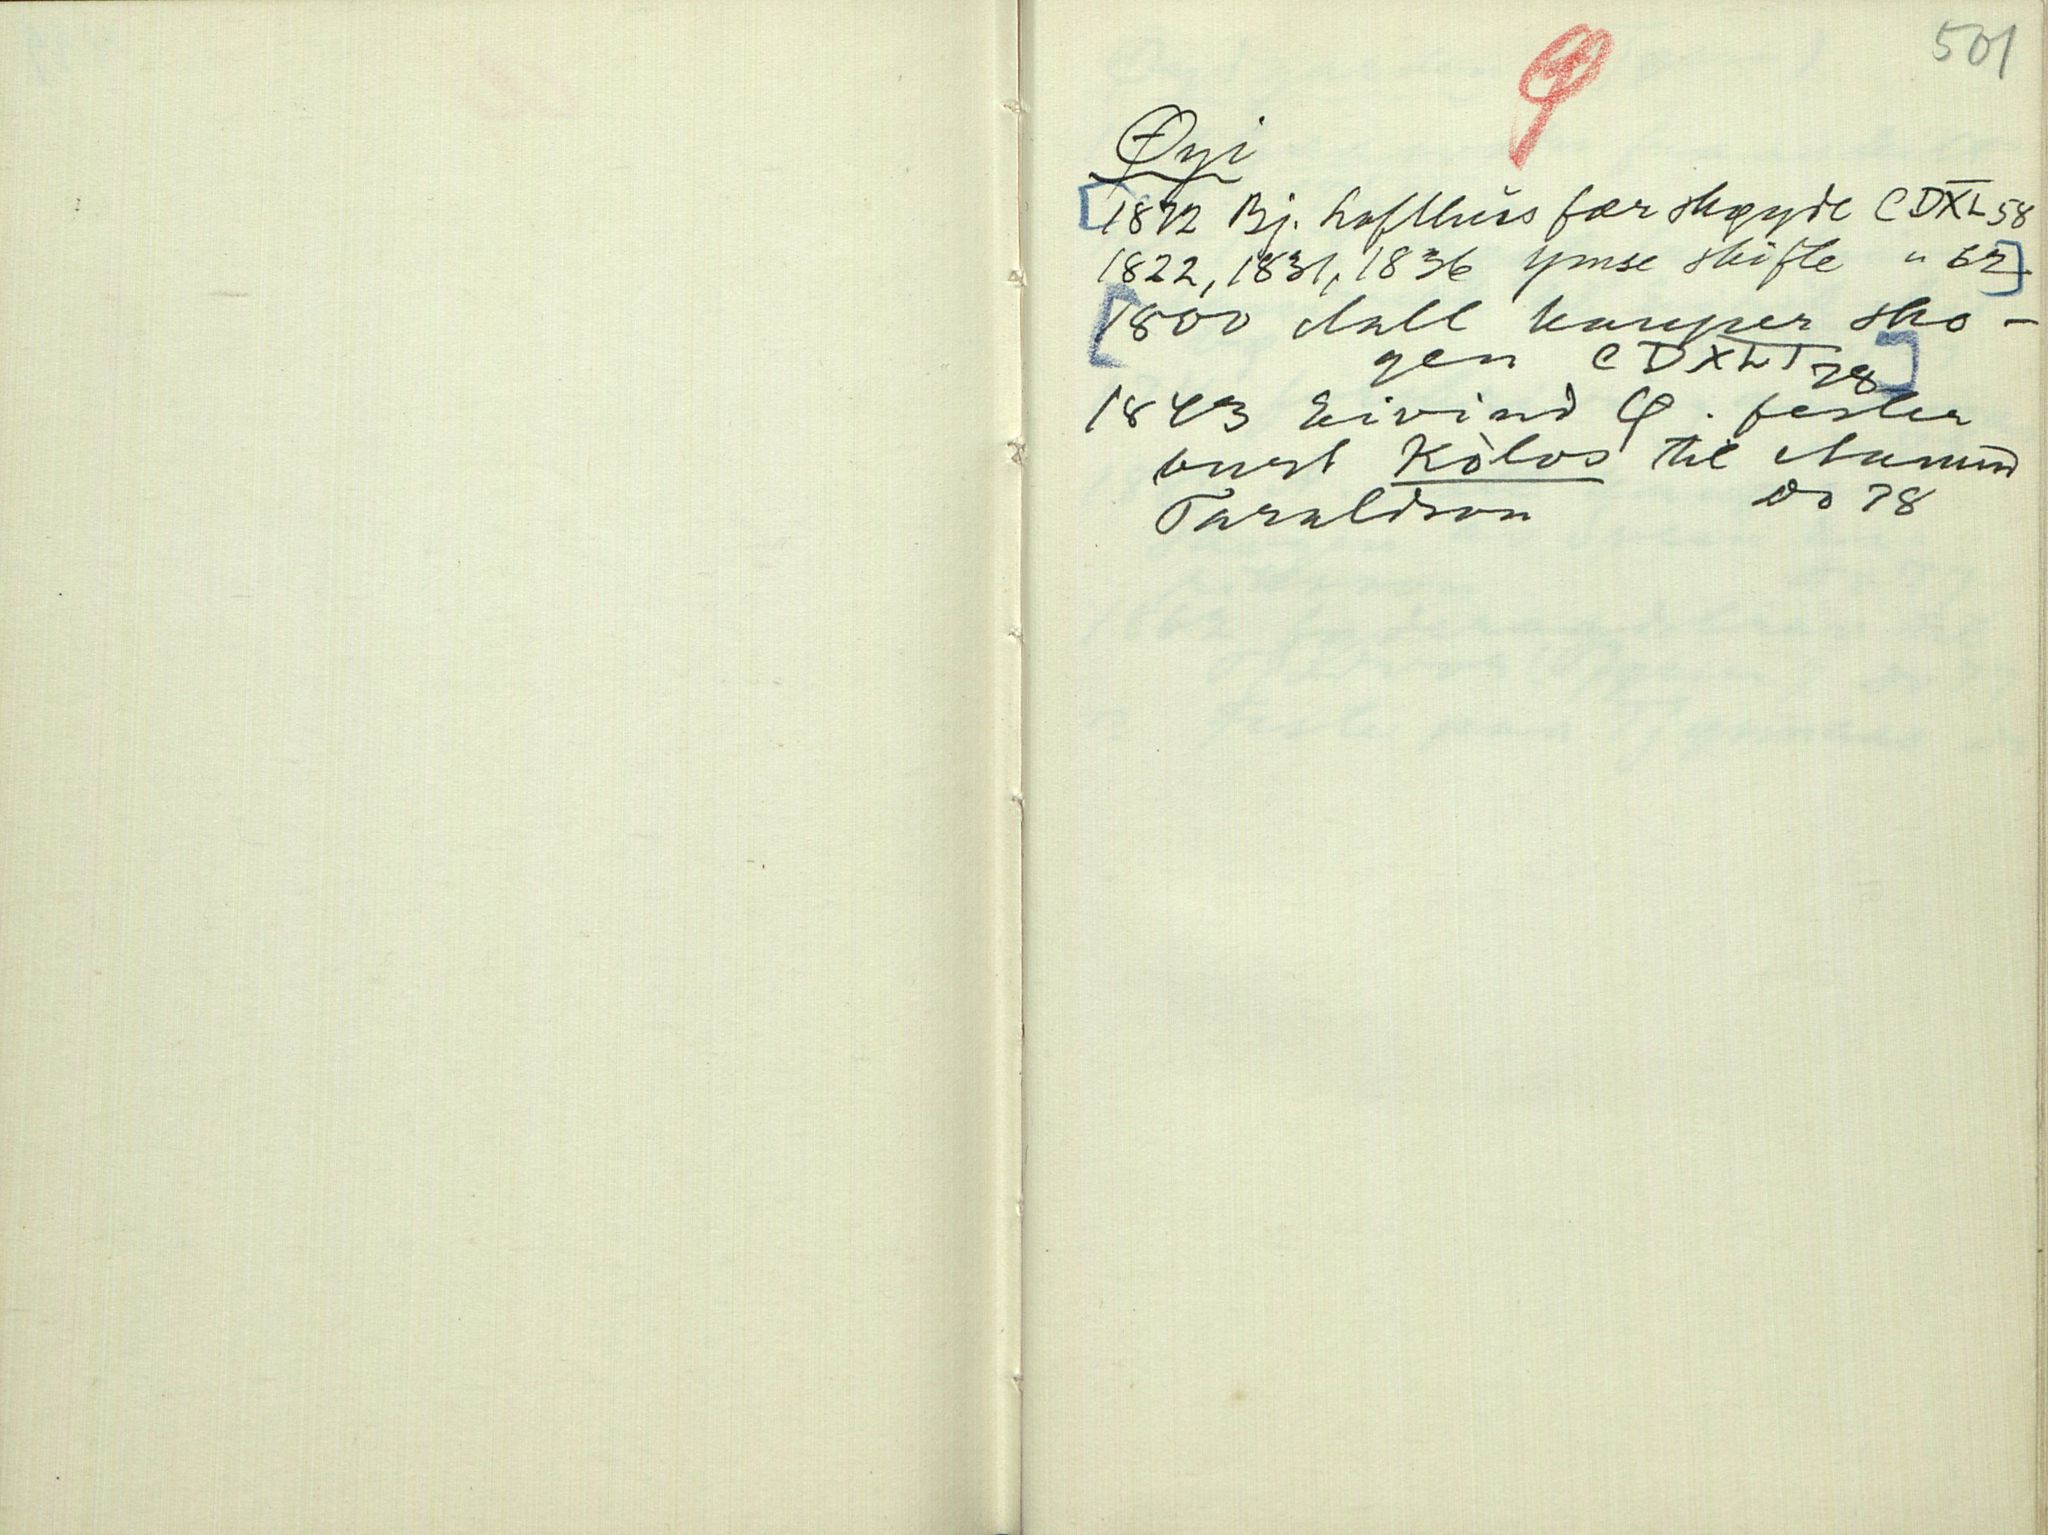 501
Ø
Øyi
[1812 Bj. Lofthus fær skøyde CDXL 58
1822, 1831, 1836 ymse skifte " 62]
[1800 Aall kauper sko-
gen CDXLI 78]
1843 Eivind Ø. fester
burt Kòlos til Aamund
Taraldson Do 78